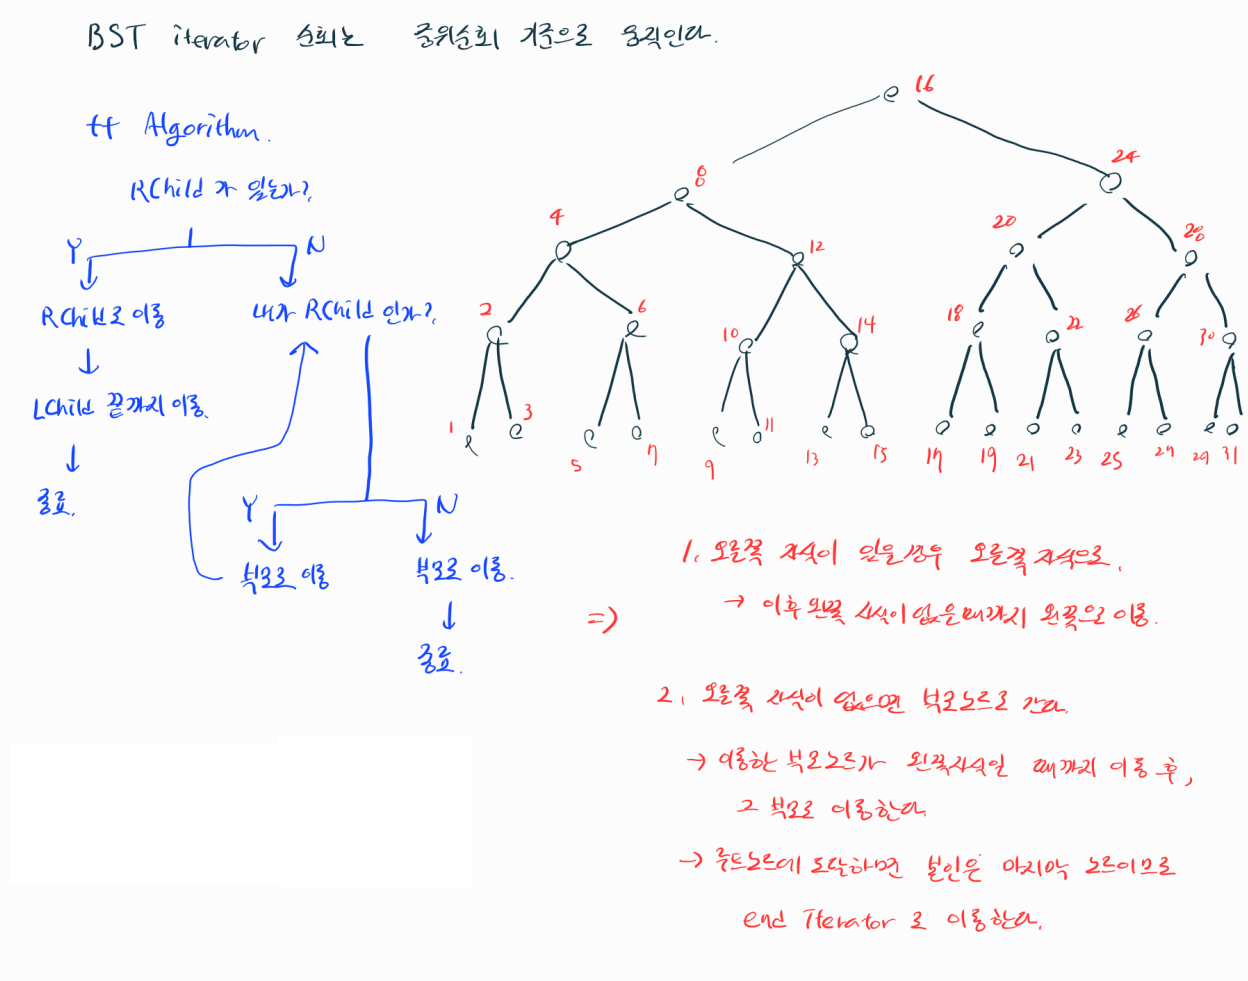 BST iterator 순회는 중위순회 기준으로 움직인다.
++ Algorithm.
RChild 가 있는가?
Y N
RChild로 이동
내가 RChild 인가?
LChild 끝까지 이동.
종료.
Y N
부모로 이동
부모로 이동.
종료.
16
8
24
4
12
20
28
2
6
10
14
18
22
26
30
1
3
5
7
9
11
13
15
17
19
21
23
25
27
29
31
1. 오른쪽 자식이 있을 경우 오른쪽 자식으로.
=> → 이후 왼쪽 자식이 없을때까지 왼쪽으로 이동.
2. 오른쪽 자식이 없으면 부모노드로 간다.
→ 이동한 부모노드가 왼쪽자식일 때까지 이동 후,
그 부모로 이동한다.
→ 루트노드에 도달하면 본인은 마지막 노드이므로
end Iterator 로 이동한다.